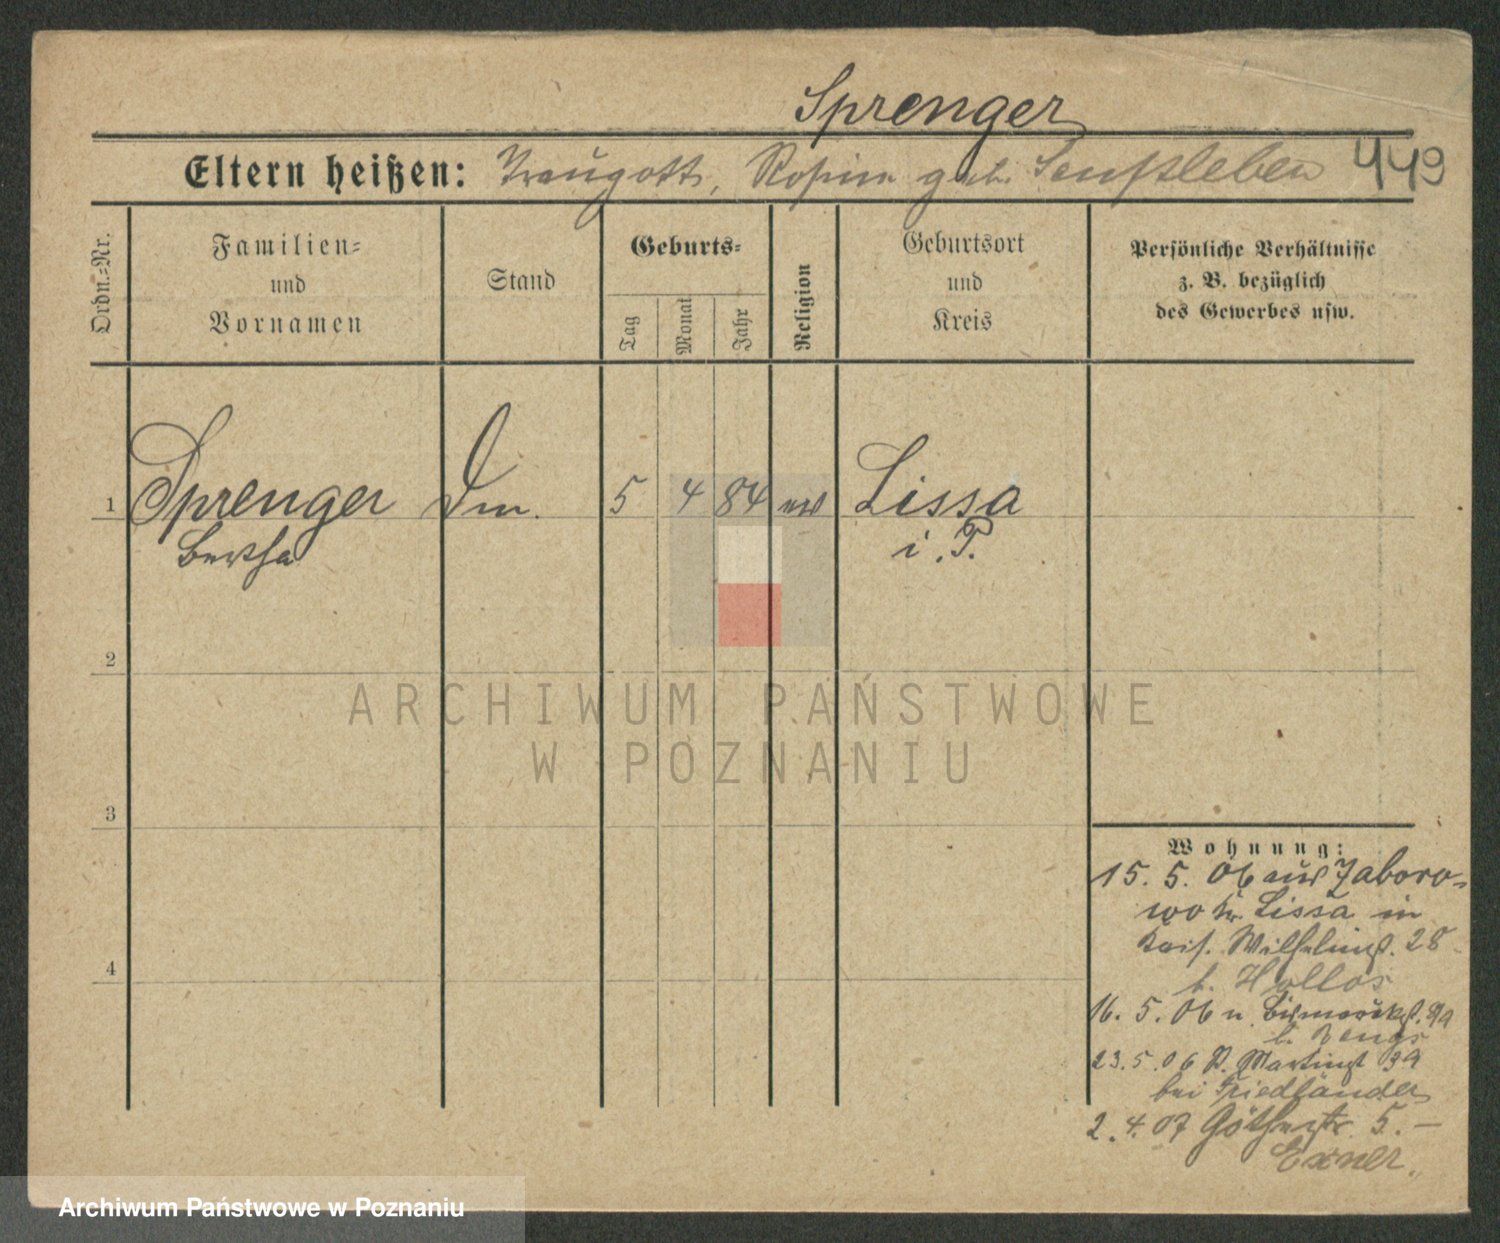 Sprenger
Eltern heißen: Traugott, Rosine geb. Senftleben 449
Ordn.-Nr.
Familien-
und
Vornamen
Stand
Geburts-
Tag
Monat
Jahr
Religion
Geburtsort
und
Kreis
Persönliche Verhältnisse
z. B. bezüglich
des Gewerbes usw.
1 Sprenger Dm. 5 4 84 ev Lissa
Bertha i. P.
2
3
4
ARCHIWUM PAŃSTWOWE
W POZNANIU
Wohnung:
15. 5. 06 aus Zaboro-
wo Kr. Lissa in
Kais. Wilhelmst. 28
b. Hollos
16. 5. 06 n. Bismarckst.
b.
23. 5. 06 Martinst 39
bei Friedländer
2. 4. 07 Göthestr. 5. –
Exner.
Archiwum Państwowe w Poznaniu